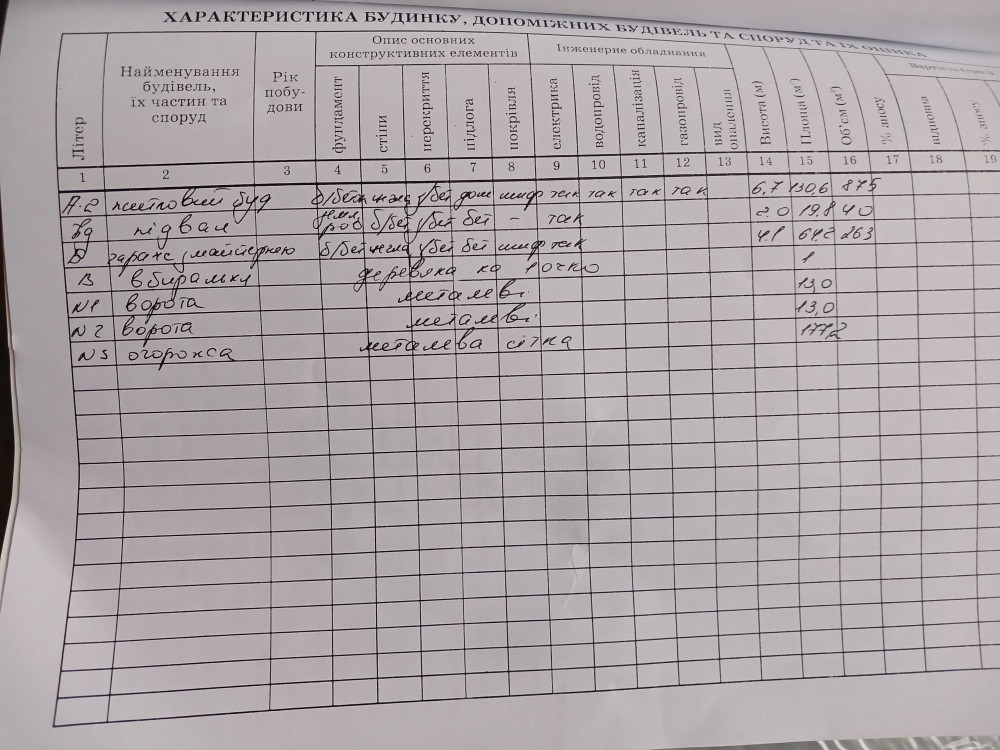 ХАРАКТЕРИСТИКА БУДИНКУ, ДОПОМІЖНИХ БУДІВЕЛЬ ТА СПОРУД ТА ЇХ ОЦІНКА
Літер
Найменування будівель, їх частин та споруд
Рік побу-дови
Опис основних конструктивних елементів
фундамент
стіни
перекриття
підлога
покрівля
Інженерне обладнання
електрика
водопровід
каналізація
газопровід
вид опалення
Висота (м)
Площа (м²)
Об'єм (м³)
% зносу
відновна
% зносу
1 2 3 4 5 6 7 8 9 10 11 12 13 14 15 16 17 18 19
А-2 житловий буд б/бет цегла з/бет дош шиф так так так так 6,7 130,6 875
підвал б/бет з/бет бет – так 2.0 19.8 40
Б гараж з майстернею б/бет цегла з/бет бет шиф так 4.1 64.2 263
В вбиральня 1
N1 ворота металеві 13,0
N2 ворота металеві 13,0
N3 огорожа металева сітка 177,2